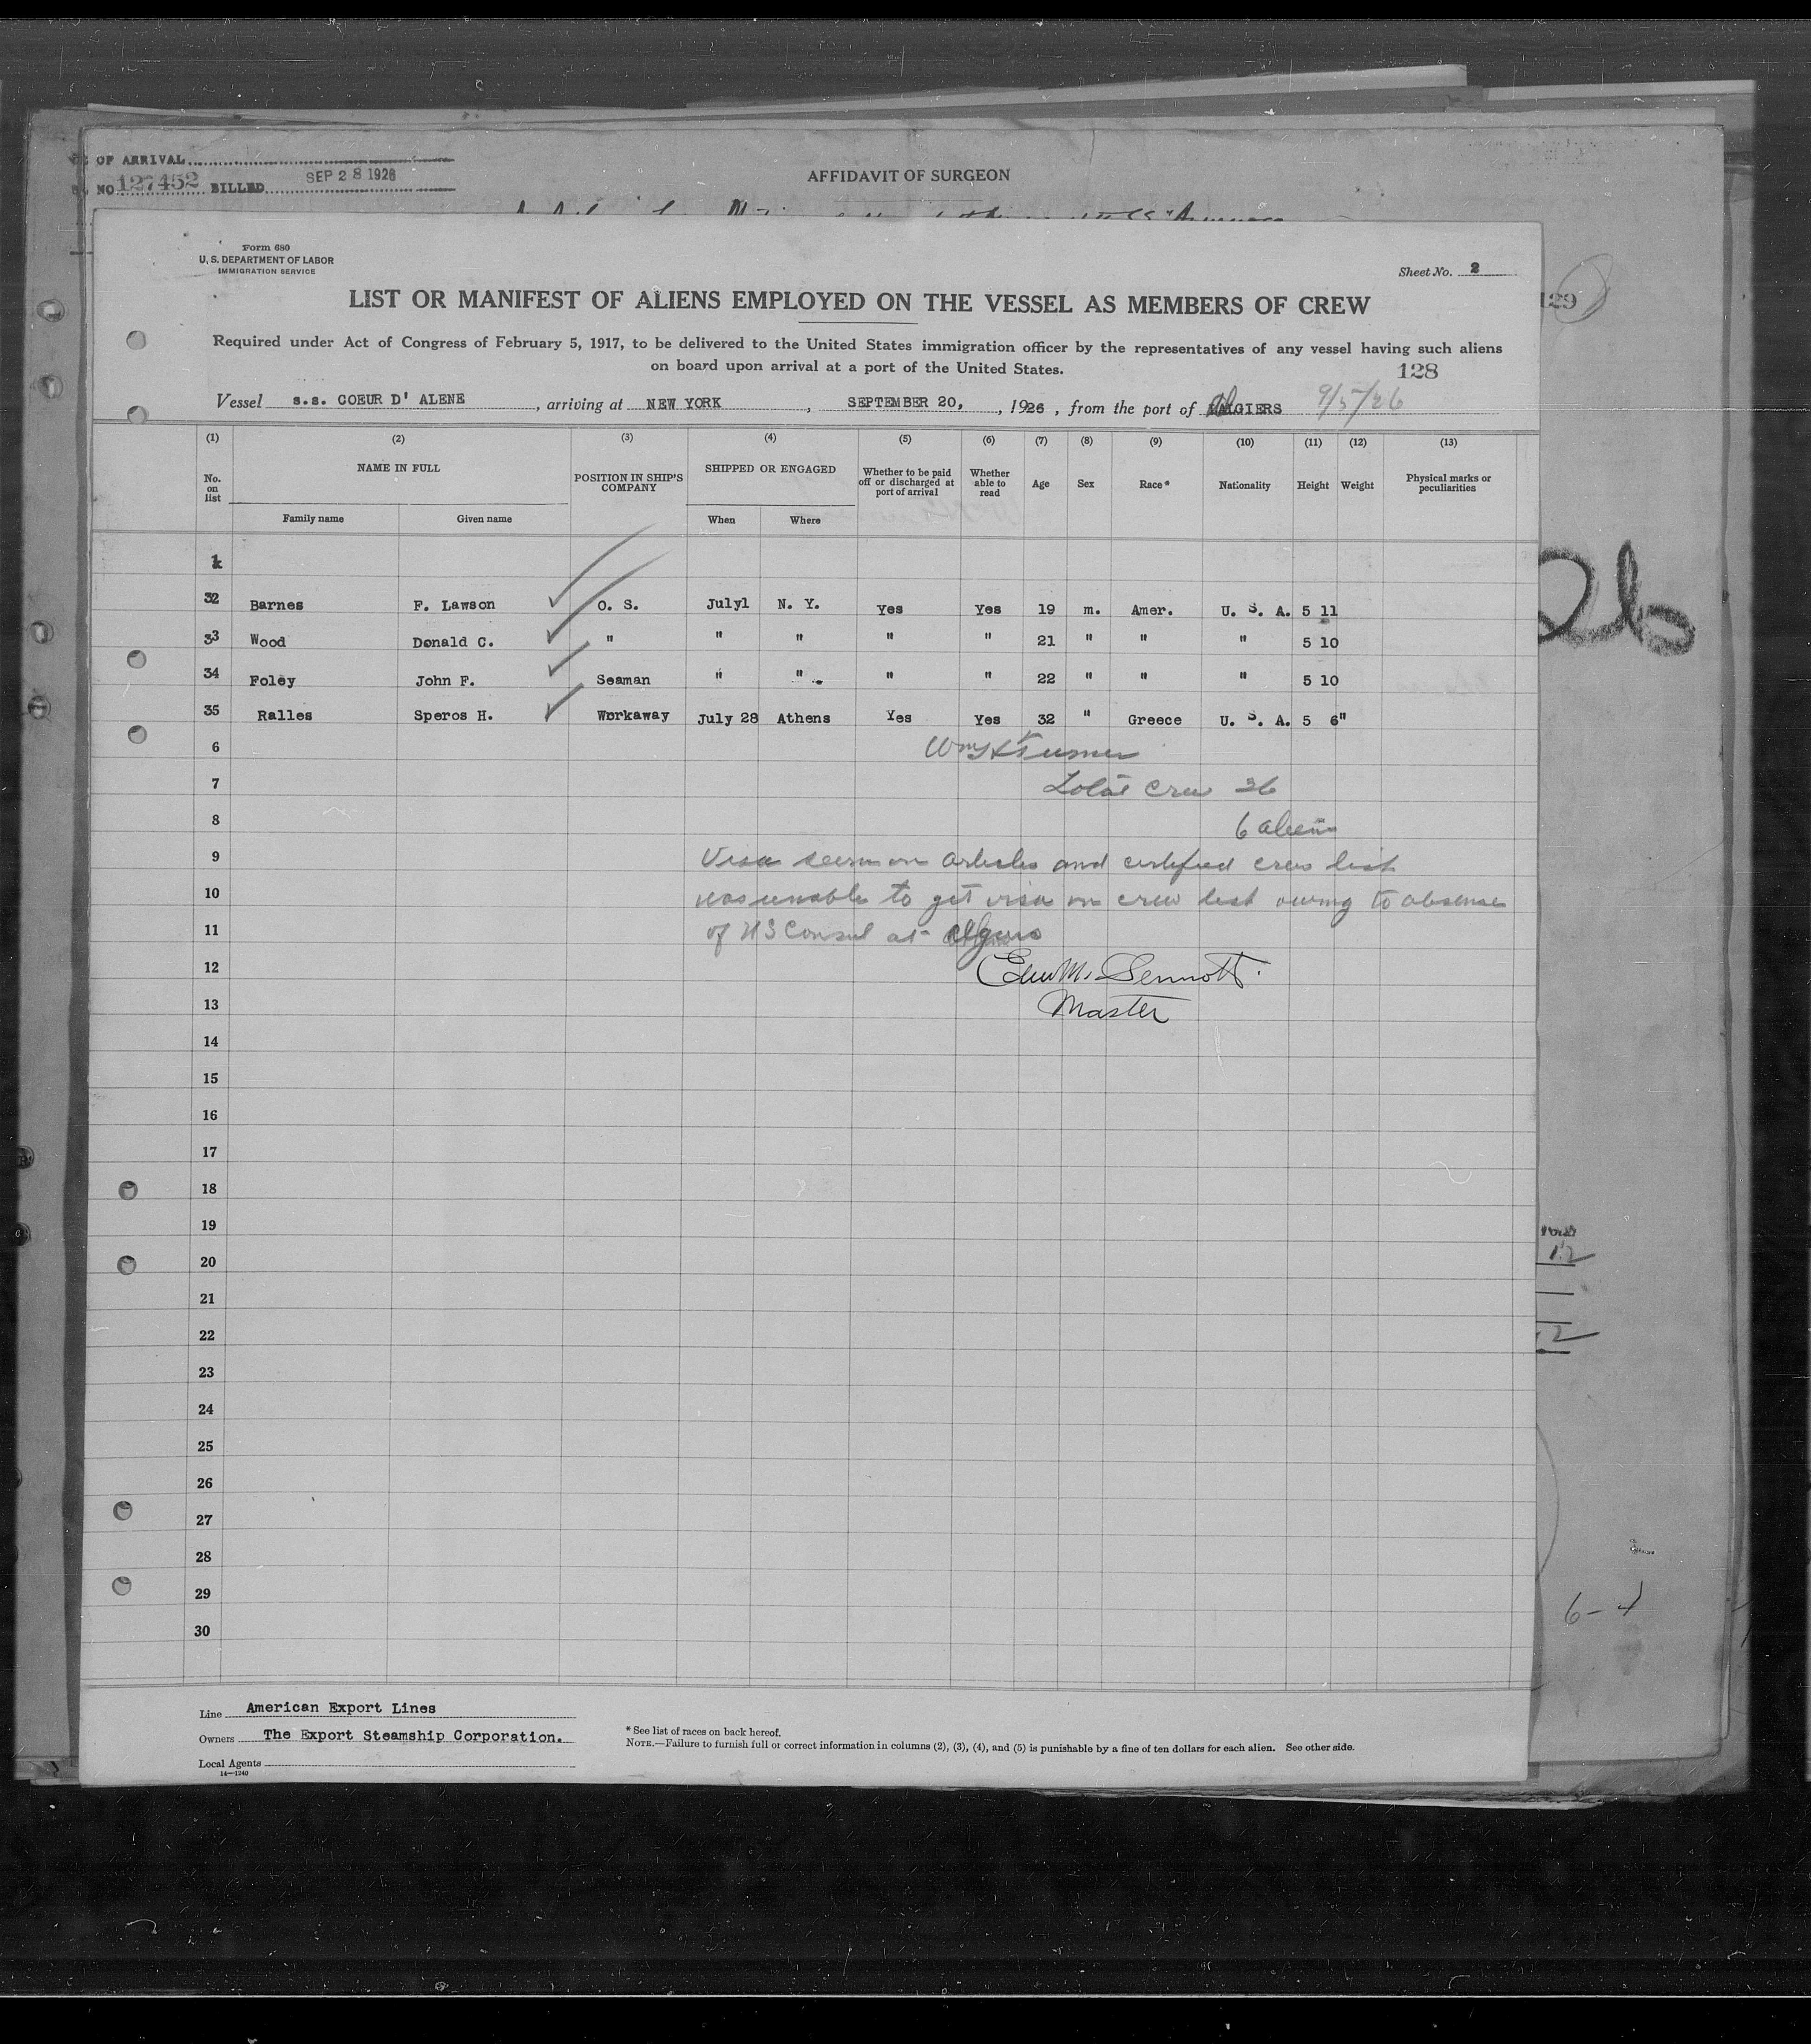 OF ARRIVAL
NO 127452 BILLED SEP 28 1926
AFFIDAVIT OF SURGEON
129
Form 680
U. S. DEPARTMENT OF LABOR
IMMIGRATION SERVICE
Sheet No. 2
LIST OR MANIFEST OF ALIENS EMPLOYED ON THE VESSEL AS MEMBERS OF CREW
Required under Act of Congress of February 5, 1917, to be delivered to the United States immigration officer by the representatives of any vessel having such aliens
on board upon arrival at a port of the United States.
128
Vessel s.s. COEUR D' ALENE , arriving at NEW YORK , SEPTEMBER 20, , 1926 , from the port of ALGIERS 9/5/26
(1) (2) (3) (4) (5) (6) (7) (8) (9) (10) (11) (12) (13)
No. on list NAME IN FULL POSITION IN SHIP'S COMPANY SHIPPED OR ENGAGED Whether to be paid off or discharged at port of arrival Whether able to read Age Sex Race* Nationality Height Weight Physical marks or peculiarities
Family name Given name When Where
1
32 Barnes F. Lawson O. S. July1 N. Y. Yes Yes 19 m. Amer. U. S. A. 5 11
33 Wood Donald C. " " " " " 21 " " " 5 10
34 Foley John F. Seaman " " " " 22 " " " 5 10
35 Ralles Speros H. Workaway July 28 Athens Yes Yes 32 " Greece U. S. A. 5 6"
6
7 Total Crew 36
8 6 aliens
9 Visa seen on articles and certified crew list
10 was unable to get visa on crew list owing to absense
11 of US Consul at Algiers
12 Edw M. Dennott.
13 Master
14
15
16
17
18
19
20
21
22
23
24
25
26
27
28
29
30
12
2
6-4
26
Line American Export Lines
Owners The Export Steamship Corporation.
Local Agents
14—1240
* See list of races on back hereof.
NOTE.—Failure to furnish full or correct information in columns (2), (3), (4), and (5) is punishable by a fine of ten dollars for each alien. See other side.